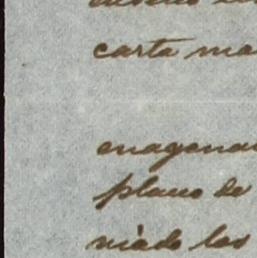 carta ma
enagenar
plano de
niado los